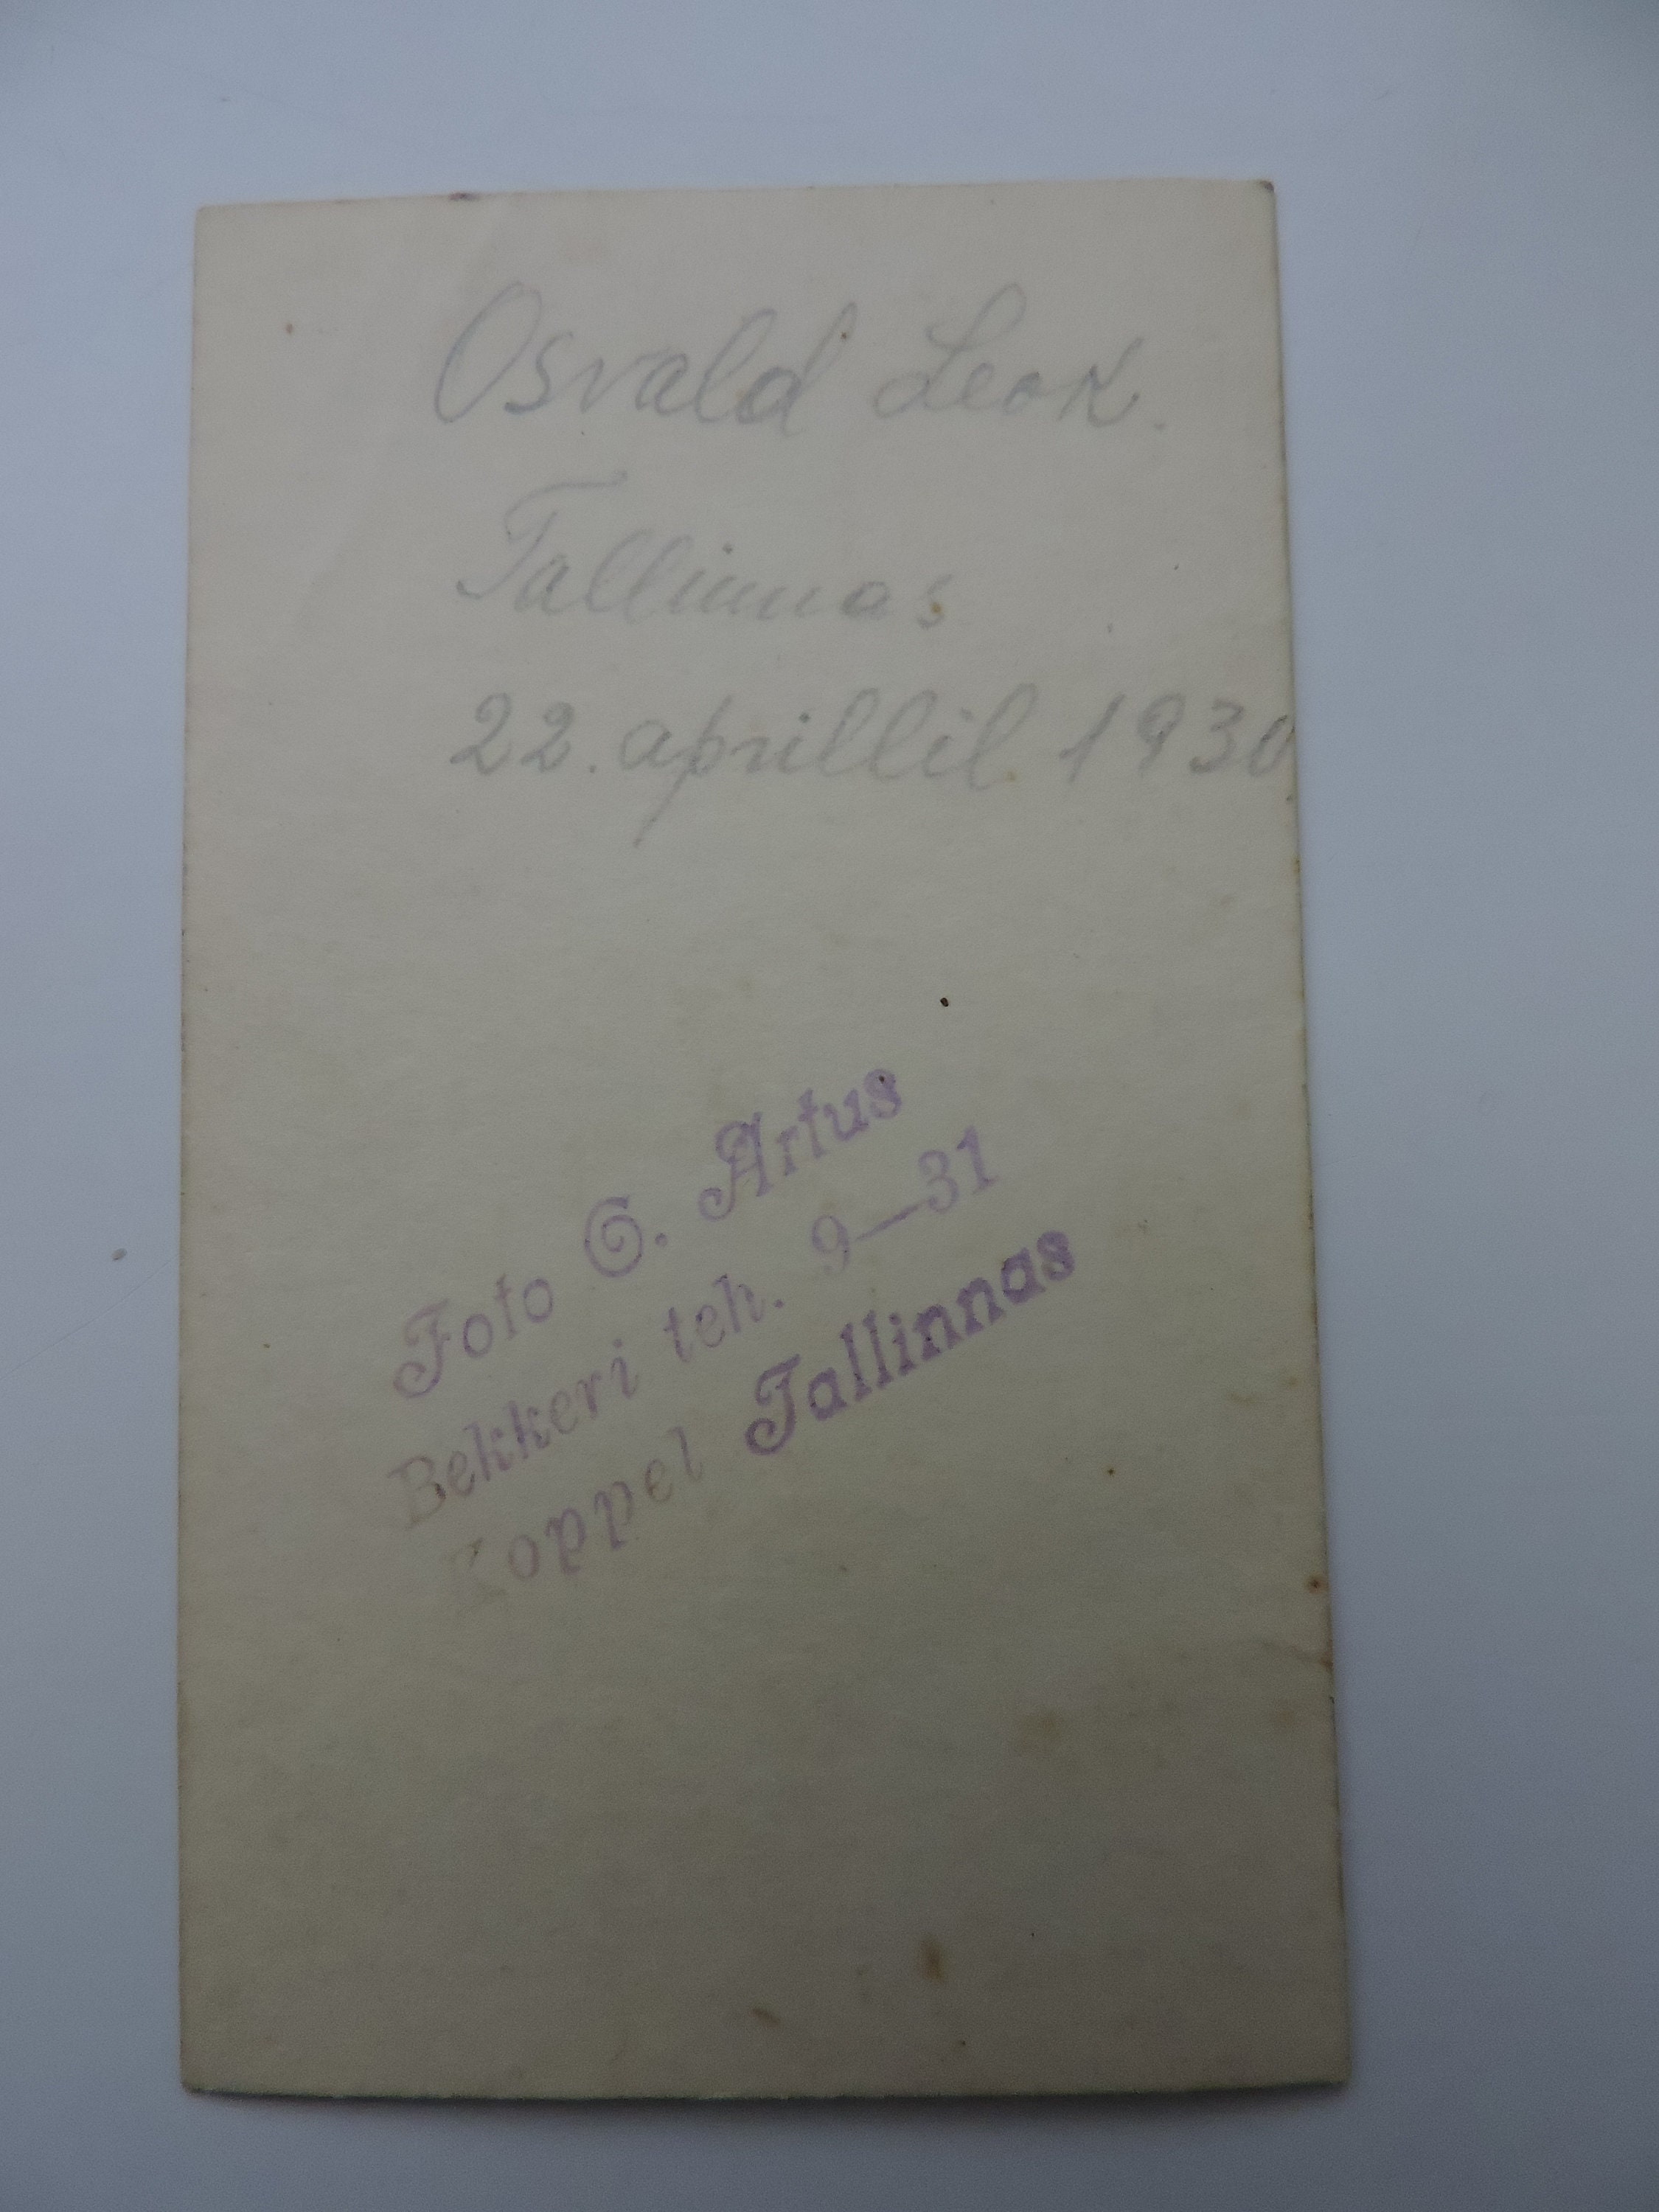 Osvald Leok.
Tallinnas
22. aprillil 1930
Foto G. Artus
Bekkeri teh. 9—31
Koppel Tallinnas